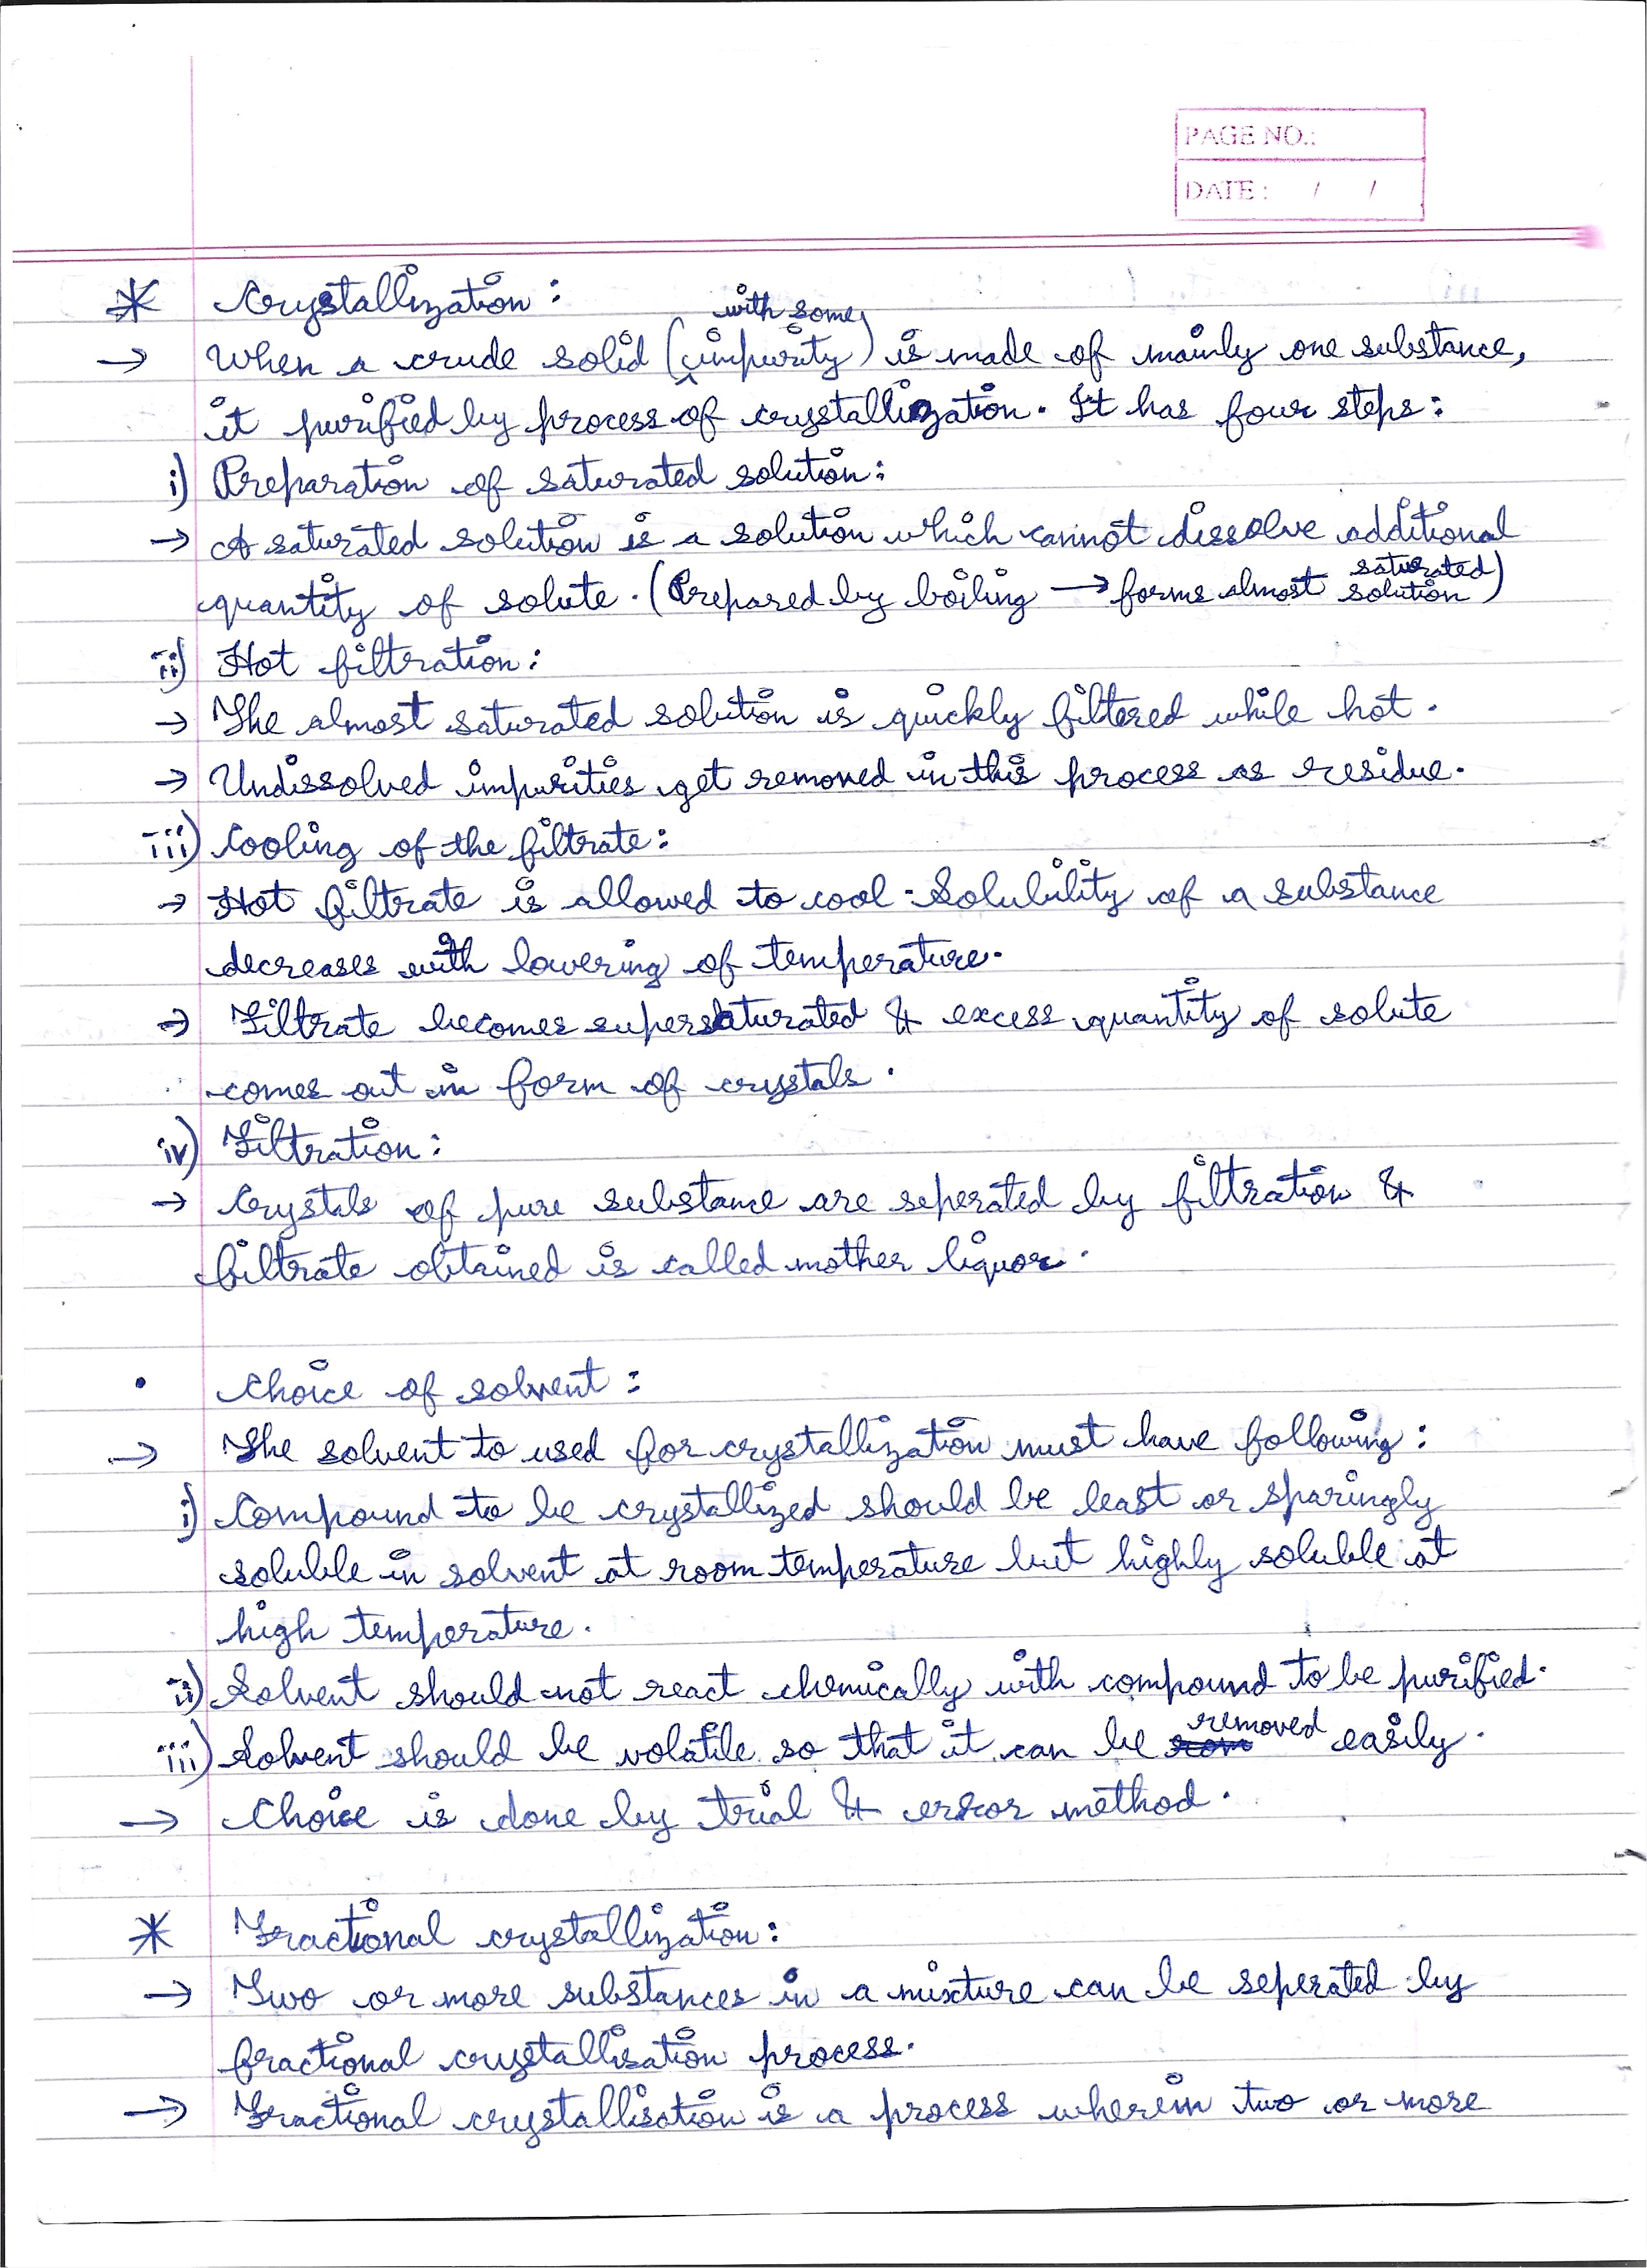 PAGE NO.:
DATE: / /
* Crystallization:
→ When a crude solid (with some impurity) is made of mainly one substance,
it purified by process of crystallization. It has four steps:
i) Preparation of saturated solution:
→ A saturated solution is a solution which cannot dissolve additional
quantity of solute. (Prepared by boiling → forms almost saturated solution)
ii) Hot filtration:
→ The almost saturated solution is quickly filtered while hot.
→ Undissolved impurities get removed in this process as residue.
iii) Cooling of the filtrate:
→ Hot filtrate is allowed to cool. Solubility of a substance
decreases with lowering of temperature.
→ Filtrate becomes supersaturated & excess quantity of solute
comes out in form of crystals.
iv) Filtration:
→ Crystals of pure substance are seperated by filtration &
filtrate obtained is called mother liquor.
• Choice of solvent:
→ The solvent to used for crystallization must have following:
i) Compound to be crystallized should be least or sparingly
soluble in solvent at room temperature but highly soluble at
high temperature.
ii) Solvent should not react chemically with compound to be purified.
iii) Solvent should be volatile so that it can be removed easily.
→ Choice is done by trial & error method.
* Fractional crystallization:
→ Two or more substances in a mixture can be seperated by
fractional crystallisation process.
→ Fractional crystallisation is a process wherein two or more